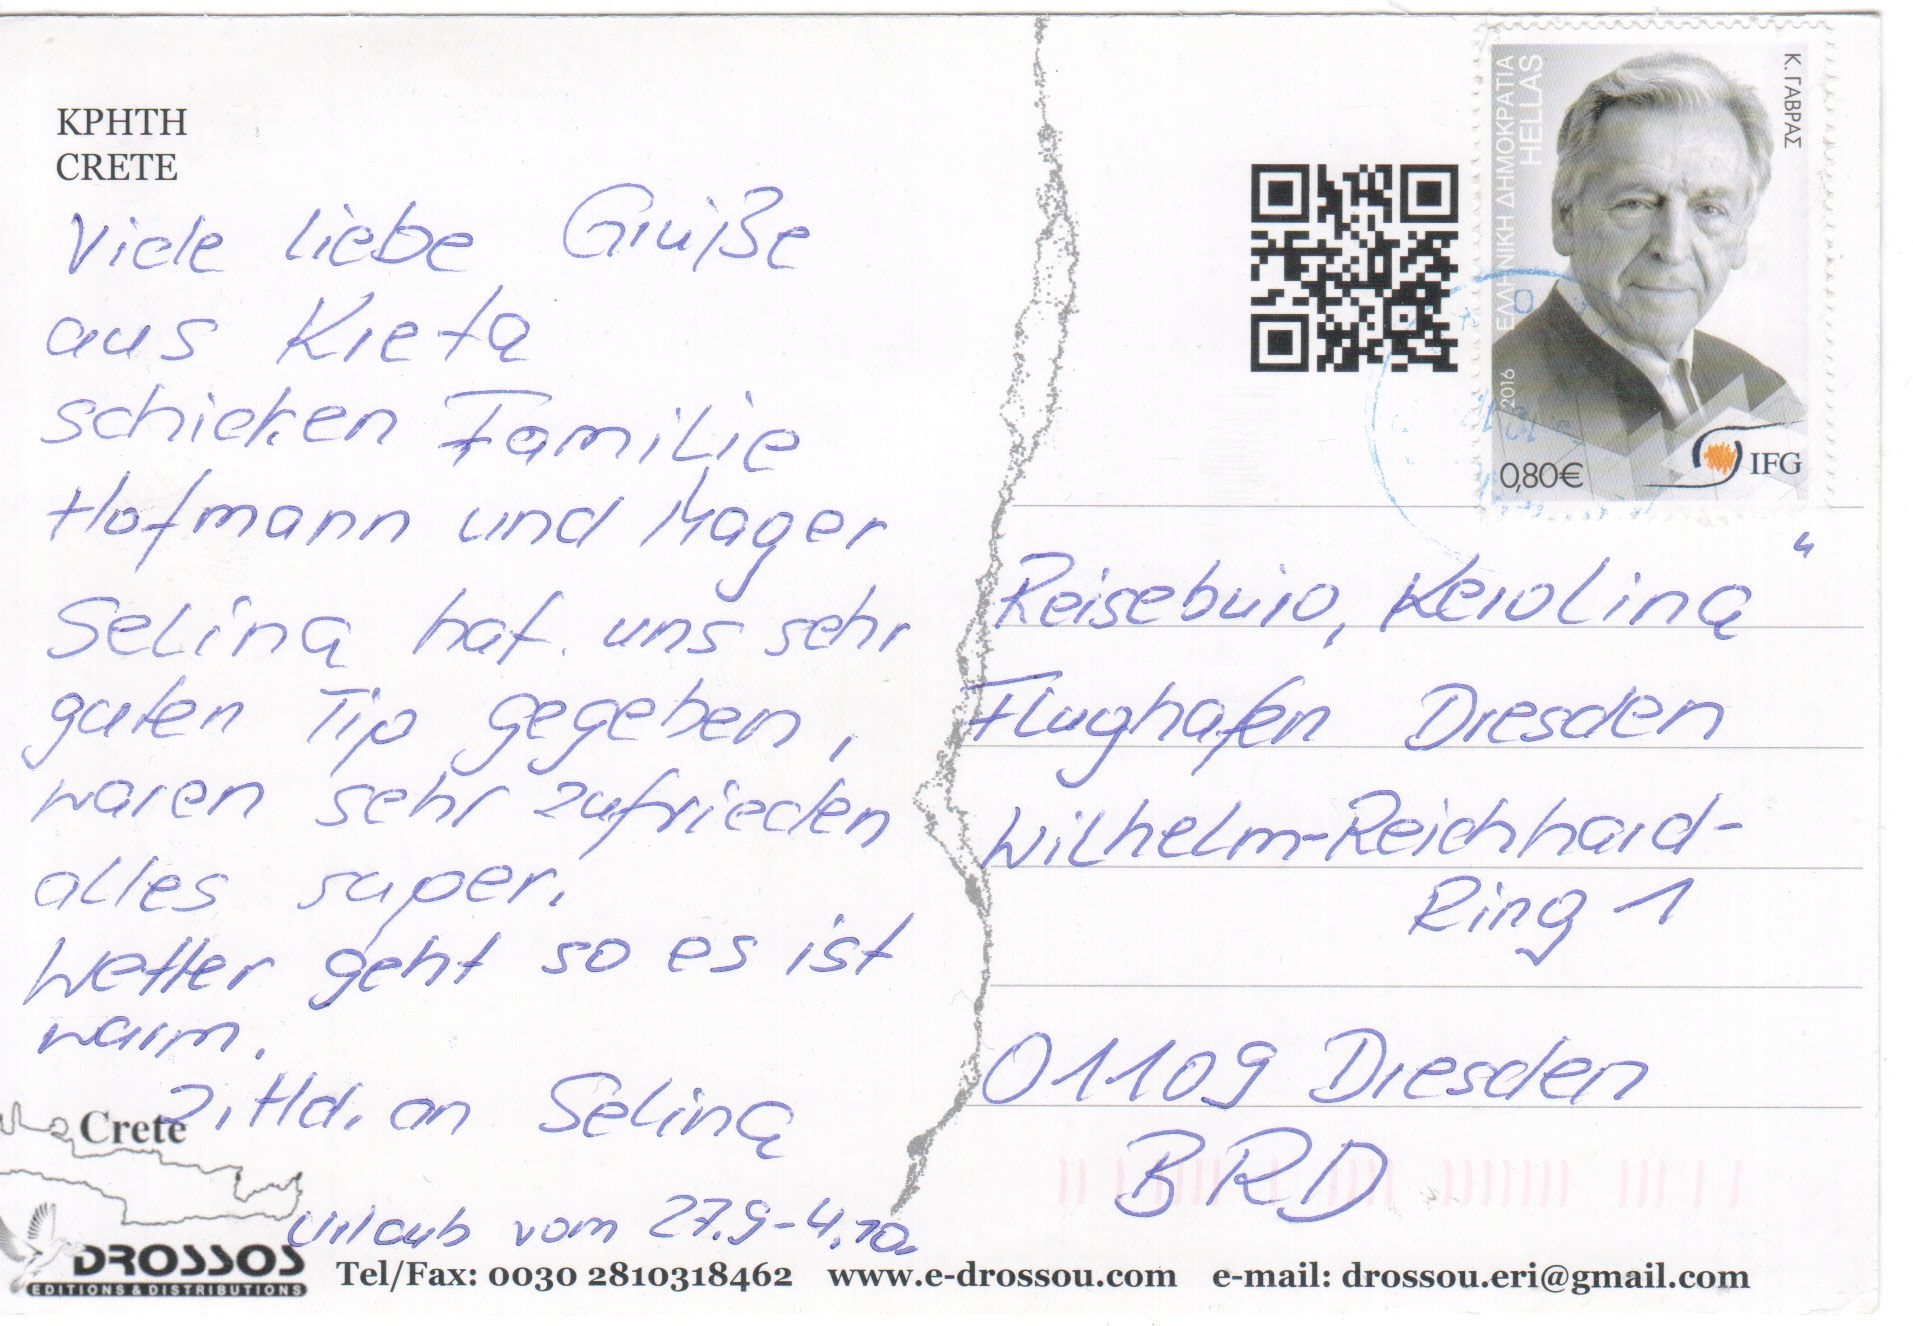 ΚΡΗΤΗ
CRETE
Viele liebe Grüße
aus Kreta
schicken Familie
Hofmann und Mager
Selina hat uns sehr
guten Tip gegeben,
waren sehr zufrieden
alles super.
Wetter geht so es ist
warm.
z.Hd. an Selina
Urlaub vom 27.9-4.10.
Crete
DROSSOS
EDITIONS & DISTRIBUTIONS
Tel/Fax: 0030 2810318462 www.e-drossou.com e-mail: drossou.eri@gmail.com
Κ. ΓΑΒΡΑΣ
ΕΛΛΗΝΙΚΗ ΔΗΜΟΚΡΑΤΙΑ
HELLAS
2016
0,80€
IFG
4
Reisebüro, Kerolina
Flughafen Dresden
Wilhelm-Reichhard-
Ring 1
01109 Dresden
BRD